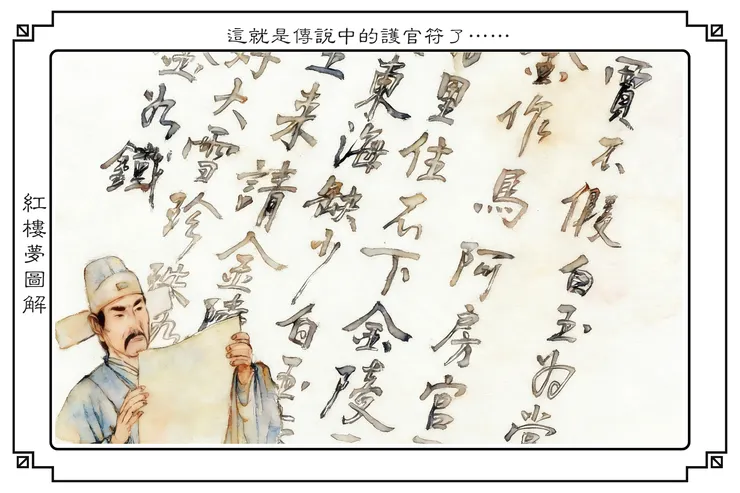 這就是傳說中的護官符了……
紅樓夢圖解
賈不假白玉為堂
金作馬阿房官
里住不下金陵
東海缺少白玉
王來請金陵
好大雪珍珠如
金如鐵